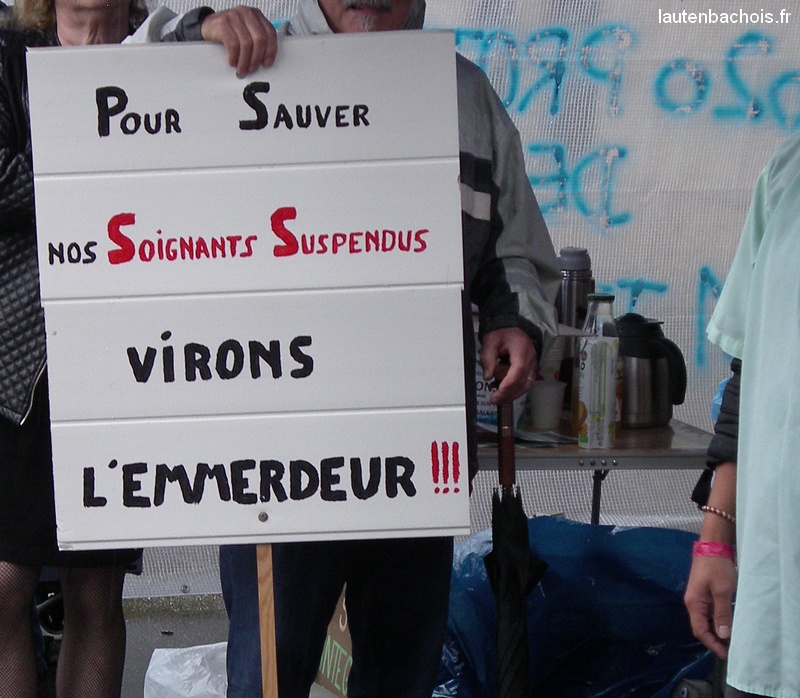 lautenbachois.fr
POUR SAUVER
NOS SOIGNANTS SUSPENDUS
VIRONS
L'EMMERDEUR !!!
DE